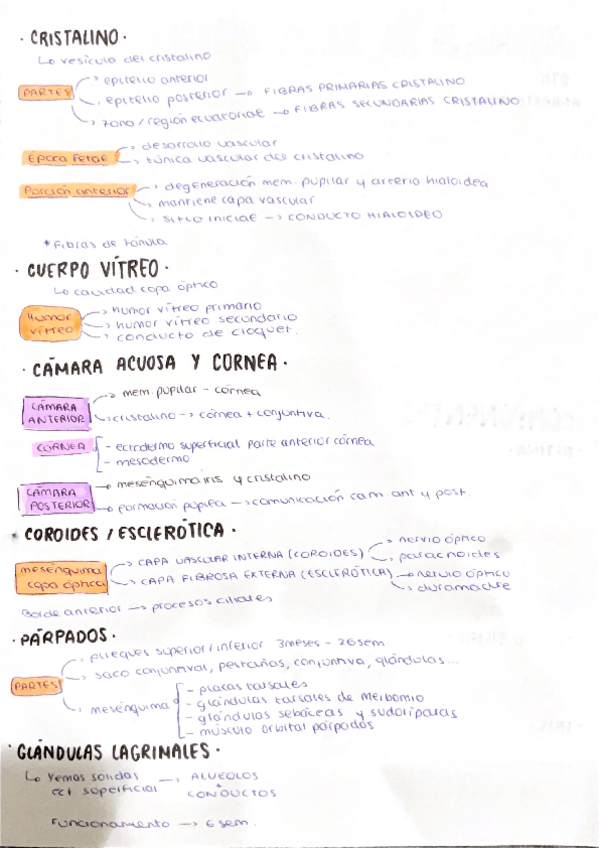 · CRISTALINO ·
↳ vesícula del cristalino
PARTES
→ epitelio anterior
→ epitelio posterior → FIBRAS PRIMARIAS CRISTALINO
→ zona/región ecuatoriae → FIBRAS SECUNDARIAS CRISTALINO
Época fetae
→ desarollo vascular
→ túnica vascular des cristalino
Porción anterior
→ degeneración mem. pupilar y arteria hialoidea
→ mantiene capa vascular
→ sitio iniciae → CONDUCTO HIALOIDEO
*Fibras de zónula
· CUERPO VÍTREO ·
↳ cavidad copa óptica
Humor vítreo
→ humor vítreo primario
→ humor vítreo secundario
→ conducto de cloquet.
· CÁMARA ACUOSA Y CORNEA ·
CÁMARA ANTERIOR
→ mem. pupilar - córnea
→ cristalino → córnea + conjuntiva.
CÓRNEA
- ectodermo superficial parte anterior córnea
- mesodermo
CÁMARA POSTERIOR
→ mesénquima iris y cristalino
→ formación pupila → comunicación cam. ant y post.
· COROIDES / ESCLERÓTICA ·
mesénquima copa óptica
→ CAPA VASCULAR INTERNA (COROIDES)
→ nervio óptico
→ paracnoides
→ CAPA FIBROSA EXTERNA (ESCLERÓTICA)
→ nervio óptico
→ duramadre
Borde anterior → procesos ciliares
· PÁRPADOS ·
PARTES
→ plieques superior/inferior 3meses - 26sem
→ saco conjuntival, pestañas, conjuntiva, glándulas...
→ mesénquima
- placas tarsales
- glándulas tarsales de meibomio
- glándulas sebáceas y sudoríparas
- músculo orbital párpados
· GLÁNDULAS LAGRIMALES ·
↳ Yemas sólidas → ALVEOLOS
ect superficial + CONDUCTOS
Funcionamento → 6 sem.